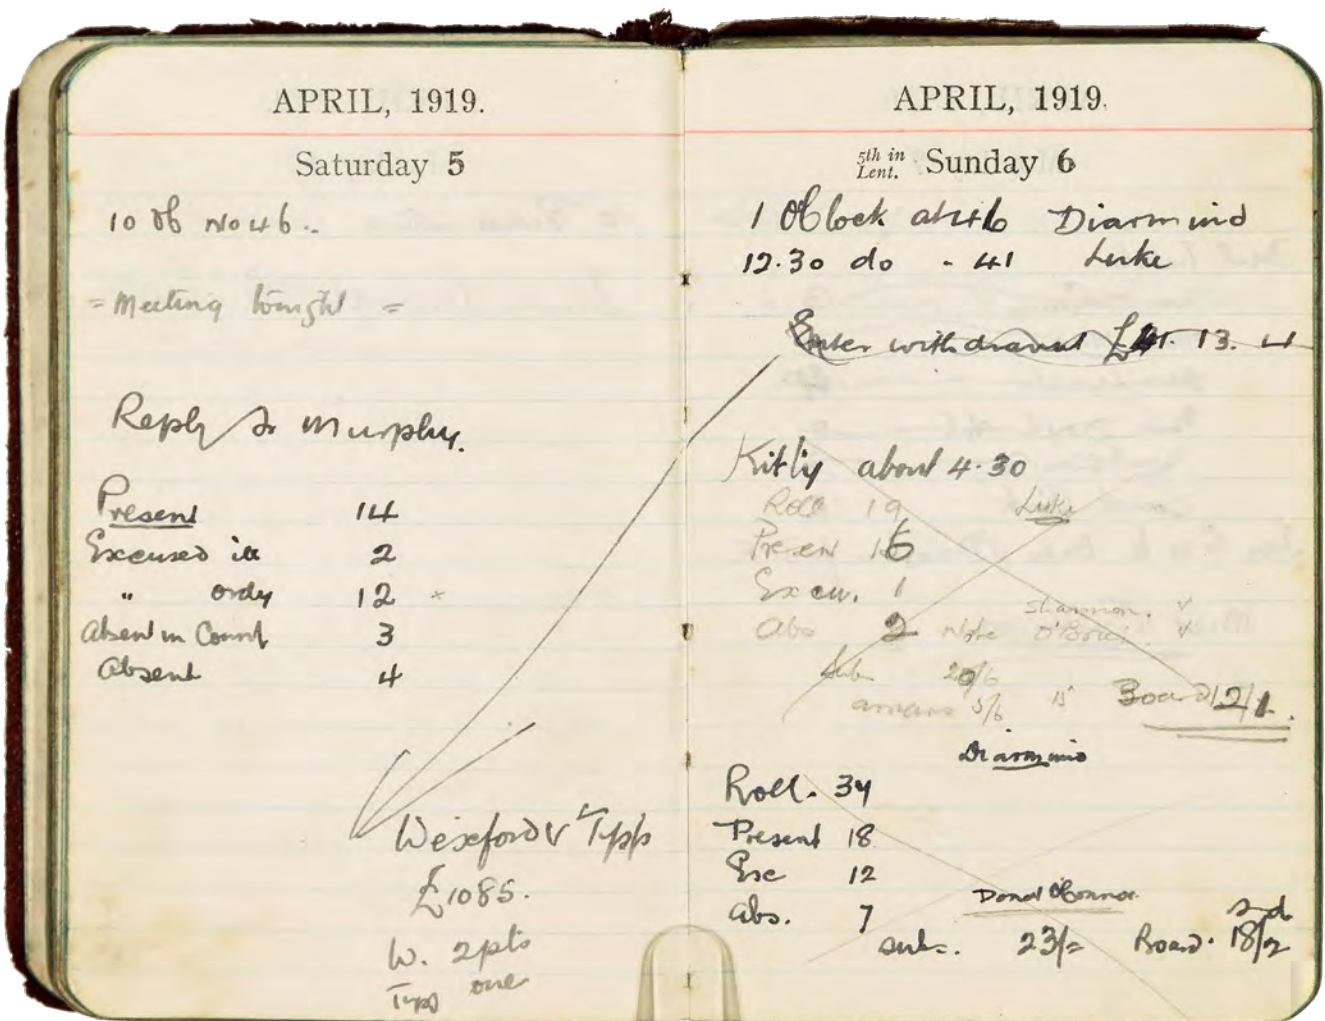 APRIL, 1919.
Saturday 5
10 Ob No 46..
= Meeting tonight =
Reply to Murphy.
Present 14
Excused ill 2
" ordy 12 ×
Absent in Count 3
Absent 4
Wexford v Tipp
£1085.
W. 2 pts
Tipp one
APRIL, 1919.
5th in Lent. Sunday 6
1 Oblock at 46 Diarmuid
12.30 do - 41 Luke
Enter withdrawal £41. 13. 4
Kitty about 4.30
Roll 19 Luke
Present 16
Excu. 1 Shannon. v
Abs 2 Note O'Brien v
Sub 20/6
arrears 5/6 15 Board 12/1.
Diarmuid
Roll. 34
Present 18
Exc 12
Abs. 7 Donal O'Connor
s d
sub=. 23/= Board. 18/2